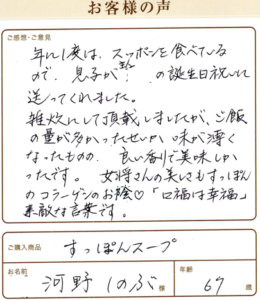 お客様の声
ご感想・ご意見
年に1度は、スッポンを食べている
ので、息子が の誕生日祝いに
送ってくれました。
雑炊にして頂戴しましたが、ご飯
の量が多かったせいか味が薄く
なったものの、良い香りで美味しか
ったです。女将さんの美しさもすっぽん
のコラーゲンのお陰♡「口福は幸福」
素敵な言葉です。
ご購入商品
すっぽんスープ
お名前
河野 しのぶ 様
年齢
67 歳